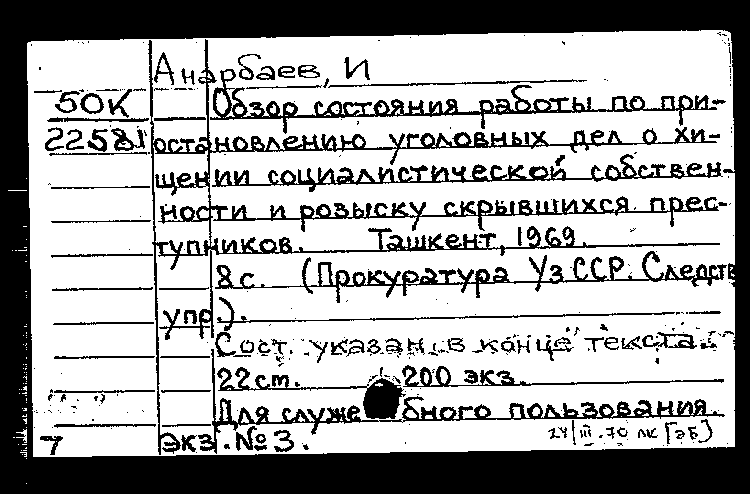 Анарбаев, И
50К
22581
Обзор состояния работы по при-
остановлению уголовных дел о хи-
щении социалистической собствен-
ности и розыску скрывшихся прес-
тупников. Ташкент, 1969.
8 с. (Прокуратура УзССР. Следств
упр.).
Сост. указан в конце текста.
22 см. 200 экз.
Для служебного пользования.
экз. №3.
7
24/III.70 лк [эб]